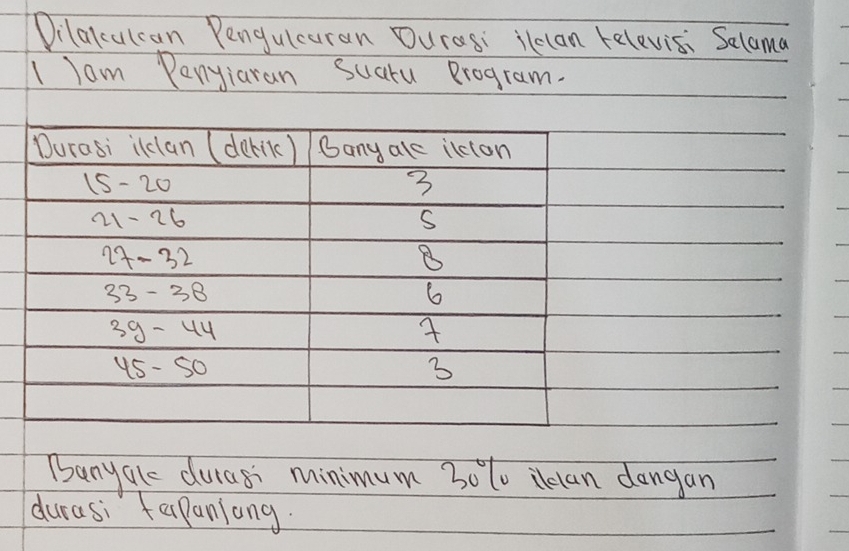 Dilakukan Pengukuran Durasi iklan televisi Selama
1 Jam Penyiaran Suatu Program.
Durasi iklan (detik) Banyak iklan
15 - 20 3
21 - 26 5
27 - 32 8
33 - 38 6
39 - 44 7
45 - 50 3
Banyak durasi minimum 30% iklan dengan
durasi terpanjang.